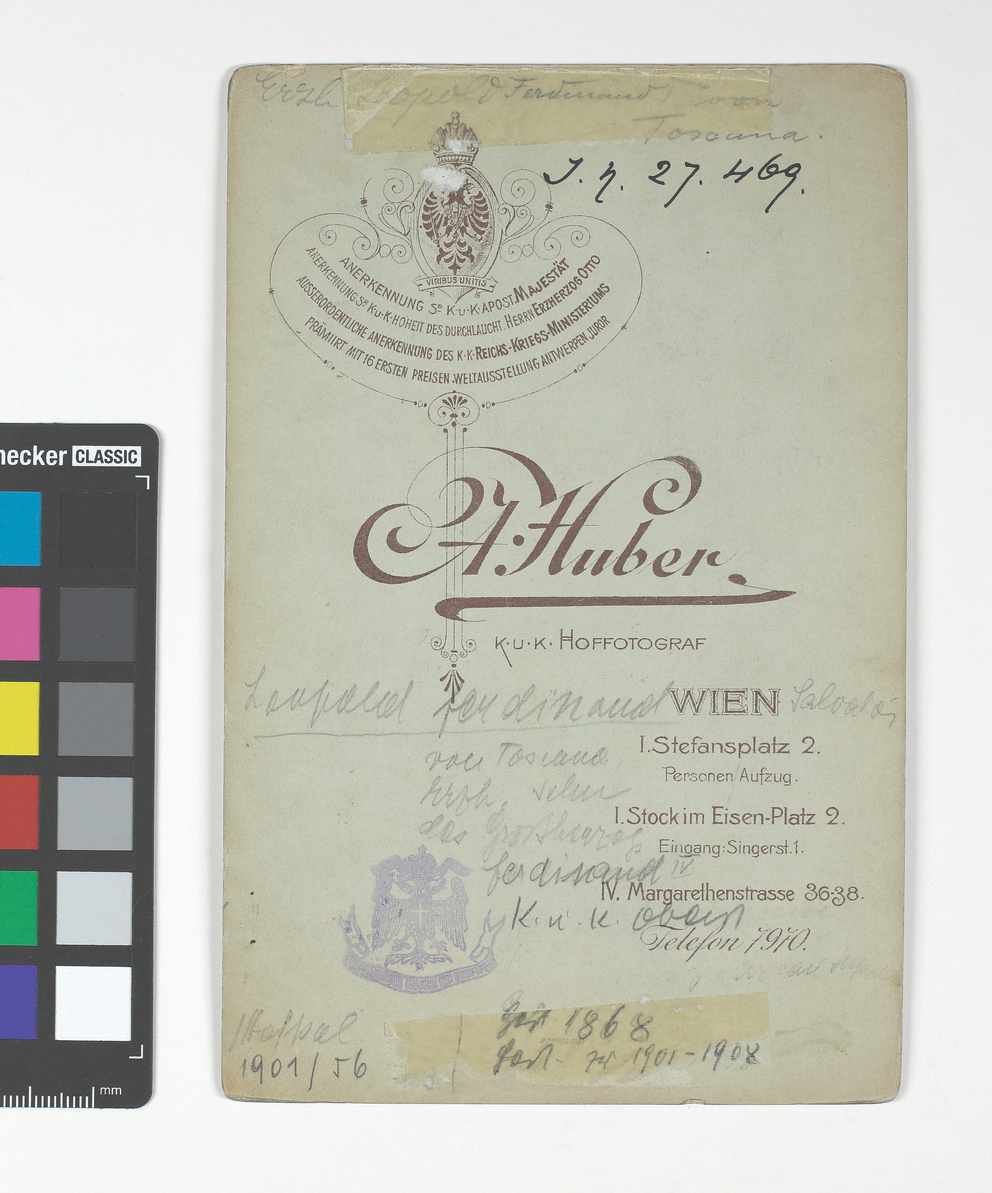 Erzh. Leopold Ferdinand von
Toscana.
J. N. 27. 469.
VIRIBUS UNITIS
ANERKENNUNG Sr K·U·K·APOST. MAJESTÄT
ANERKENNUNG Sr K·U·K·HOHEIT DES DURCHLAUCHT. HERRN ERZHERZOG OTTO
AUSSERORDENTLICHE ANERKENNUNG DES K·K·REICHS-KRIEGS-MINISTERIUMS
PRÄMIIRT MIT 16 ERSTEN PREISEN. WELTAUSSTELLUNG ANTWERPEN JUROR
necker CLASSIC
A. Huber.
K·U·K· HOFFOTOGRAF
Leopold Ferdinand Salvator
WIEN
von Toscana,
I. Stefansplatz 2.
Personen Aufzug.
Erzh. Sohn
I. Stock im Eisen-Platz 2.
des Großherzog
Eingang: Singerst. 1.
Ferdinand IV
IV. Margarethenstrasse 36-38.
K. u. K. Oberst
Telefon 7970.
1868
1901/56
1901-1908
mm